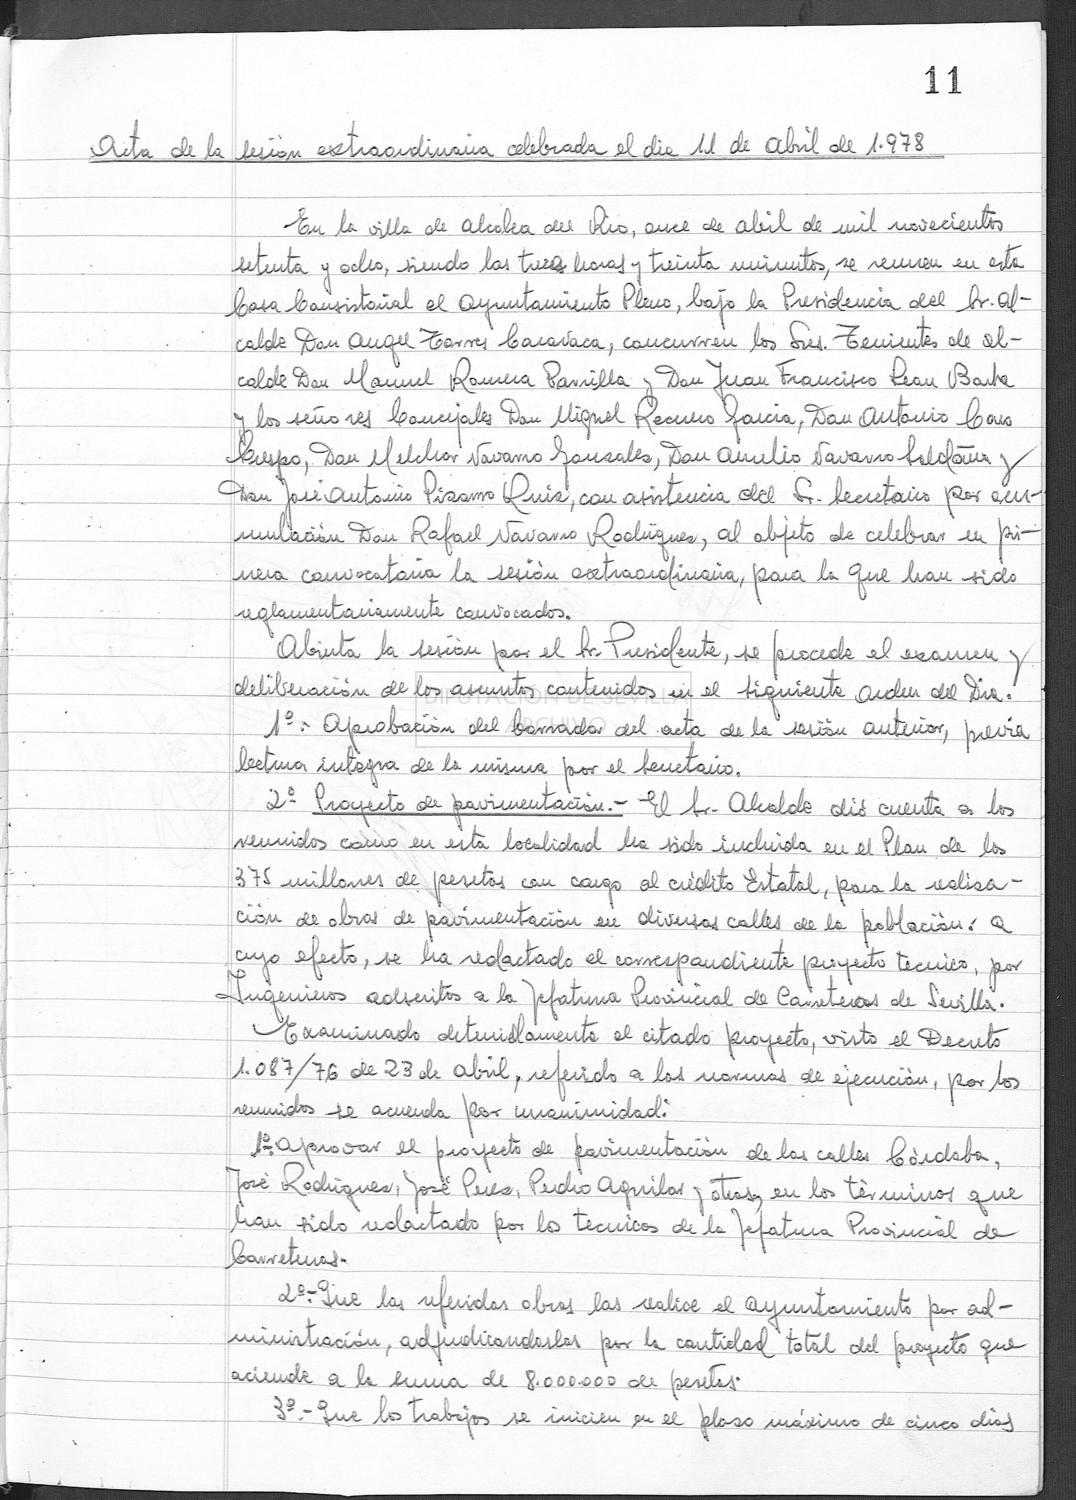 11
Acta de la sesión extraordinaria celebrada el dia 11 de Abril de 1.978
En la villa de Alcolea del Rio, once de abril de mil novecientos
setenta y ocho, siendo las trece horas y treinta minutos, se reunen en esta
Casa Consistorial el Ayuntamiento Pleno, bajo la Presidencia del Sr. Al-
calde Don Angel Torres Caravaca, concurren los Sres. Tenientes de Al-
calde Don Manuel Romera Parrilla y Don Juan Francisco Leon Barba
y los señores Concejales Don Miguel Recuero Garcia, Don Antonio Caro
Crespo, Don Melchor Navarro Gonzales, Don Aurelio Navarro Saldaña y
Don José Antonio Pizarro Ruiz, con asistencia del Sr. Secretario por acu-
mulación Don Rafael Navarro Rodriguez, al objeto de celebrar en pri-
mera convocatoria la sesión extraordinaria, para la que han sido
reglamentariamente convocados.
Abierta la sesión por el Sr. Presidente, se procede al examen y
deliberación de los asuntos contenidos en el siguiente orden del Dia.
DIPUTACIÓN DE SEVILLA
ARCHIVO
1º.- Aprobación del borrador del acta de la sesión anterior, previa
lectura integra de la misma por el Secretario.
2º Proyecto de pavimentación.- El Sr. Alcalde dió cuenta a los
reunidos como en esta localidad ha sido incluida en el Plan de los
375 millones de pesetas con cargo al crédito Estatal, para la realiza-
ción de obras de pavimentación en diversas calles de la población. A
cuyo efecto, se ha redactado el correspondiente proyecto tecnico, por
Ingenieros adscritos a la Jefatura Provincial de Carreteras de Sevilla.
Examinado detenidamente el citado proyecto, visto el Decreto
1.087/76 de 23 de Abril, referido a las normas de ejecución, por los
reunidos se acuerda por unanimidad:
1º.- Aprovar el proyecto de pavimentación de las calles Córdoba,
José Rodriguez, José Perez, Pedro Aguilar y otras, en los términos que
han sido redactado por los tecnicos de la Jefatura Provincial de
Carreteras.
2º.- Que las referidas obras las realice el Ayuntamiento por ad-
ministración, adjudicandoslas por la cantidad total del proyecto que
aciende a la suma de 8.000.000 de pesetas.
3º.- Que los trabajos se inicien en el plazo máximo de cinco dias